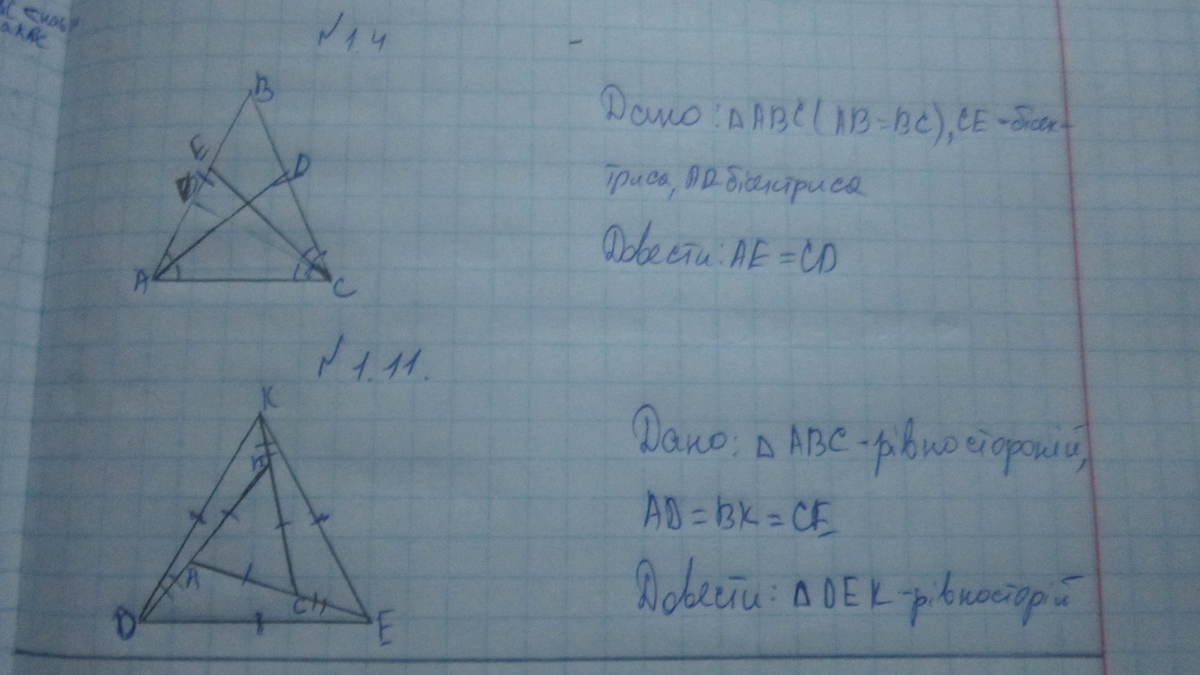 № 1.4
B
E
D
A
C
Дано: △ABC (AB=BC), CE-бісек-
триса, AD бісектриса
Довести: AE = CD
№ 1.11.
K
A
C
D
E
Дано: △ ABC-рівностороній,
AD = BK = CE
Довести: △ DEK-рівносторій